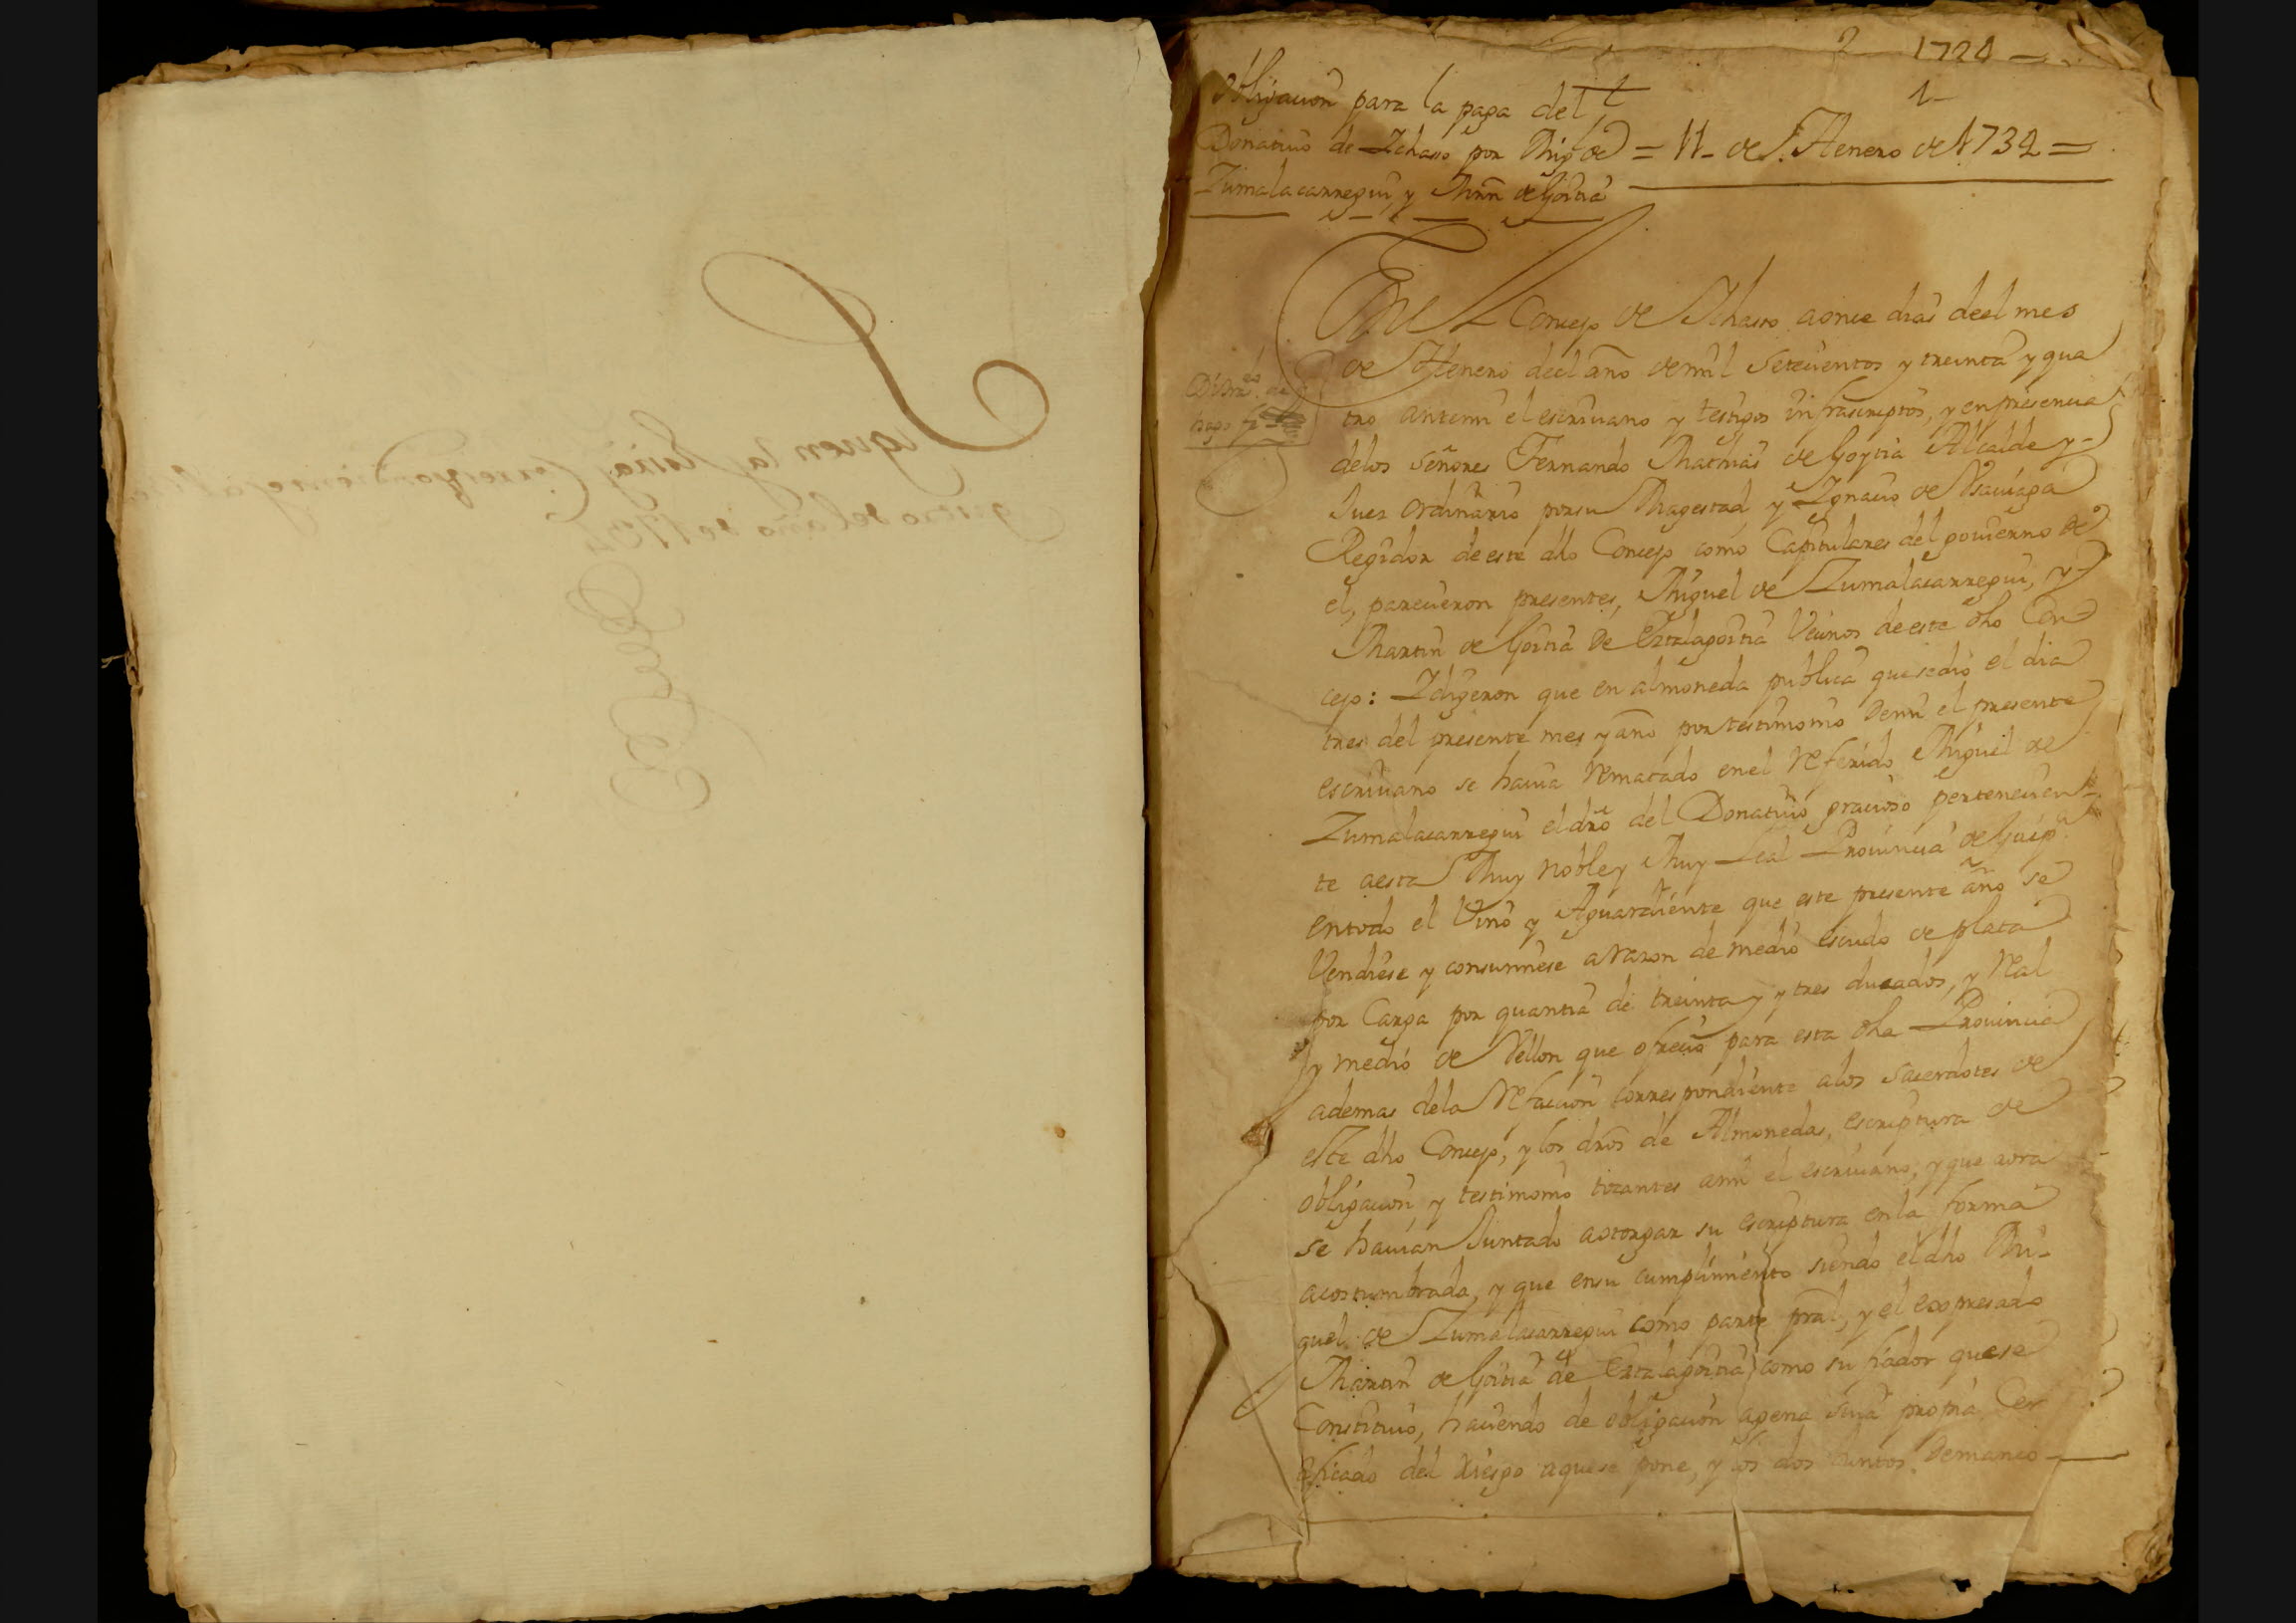 1734
1
Obligacion para la paga del
Donatiuo de Ichaso por Migl de = 11 de Henero de 1734 =
Zumalacarregui, y Mrn de Goitia
En el Concejo de Ichaso a onze dias deel mes
de Henero deel año de mil setecientos y treinta y qua
tro ante mi el escriuano y testigos infrascriptos, y en presencia
delos señores Fernando Mathias de Goytia Alcalde y
Juez ordinario por su Magestad y Ignacio de
Regidor de este dho Concejo como Capitulares del gouierno de
el, parecieron presentes, Miguel de Zumalacarregui, y
Martin de Goitia de Extalagoitia Vecinos de este dho Con
cejo: I dixeron que en almoneda publica que se dio el dia
tres del presente mes y año por testimonio de mi el presente
escriuano se hauia rematado en el referido Miguel de
Zumalacarregui el dro del Donatiuo gracioso pertenecien
te a esta Muy Noble y Muy Leal Prouincia de Guipa
en todo el Vino y Aguardiente que este presente año se
Vendiese y consumiese a razon de medio escudo de plata
por Carga por quantia de treinta y tres ducados, y real
y medio de Vellon que ofrecio para esta dha Prouincia
ademas dela refaccion correspondiente alos sacerdotes de
este dho Concejo, y los dros de Almonedas, escriptura de
obligacion y testimonio tocantes ami el escriuano, y que aora
se hauian Juntado a otorgar su escriptura en la forma
acostumbrada, y que en su cumplimiento siendo el dho Mi-
guel de Zumalacarregui como parte pral, y el expresado
Martin de Goitia de Extalagoitia como su fiador que se
Constituio, haciendo de obligacion agena suia propria Cer
tificado del riesgo aque se pone, y los dos Juntos de manco